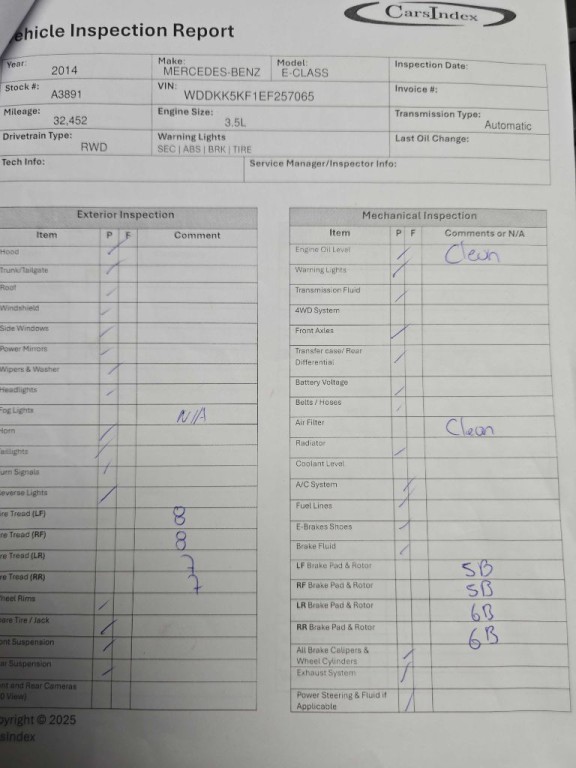 CarsIndex
ehicle Inspection Report
Year: 2014 Make: MERCEDES-BENZ Model: E-CLASS Inspection Date:
Stock #: A3891 VIN: WDDKK5KF1EF257065 Invoice #:
Mileage: 32,452 Engine Size: 3.5L Transmission Type: Automatic
Drivetrain Type: RWD Warning Lights SEC | ABS | BRK | TIRE Last Oil Change:
Tech Info: Service Manager/Inspector Info:
Exterior Inspection
Item P F Comment
Hood
Trunk/Tailgate
Roof
Windshield
Side Windows
Power Mirrors
Wipers & Washer
Headlights
Fog Lights N/A
Horn
aillights
urn Signals
everse Lights
re Tread (LF) 8
re Tread (RF) 8
re Tread (LR) 7
re Tread (RR) 7
heel Rims
are Tire / Jack
ont Suspension
ar Suspension
nt and Rear Cameras
0 View)
pyright © 2025
sIndex
Mechanical Inspection
Item P F Comments or N/A
Engine Oil Level Clean
Warning Lights
Transmission Fluid
4WD System
Front Axles
Transfer case/ Rear
Differential
Battery Voltage
Belts / Hoses
Air Filter Clean
Radiator
Coolant Level
A/C System
Fuel Lines
E-Brakes Shoes
Brake Fluid
LF Brake Pad & Rotor 5B
RF Brake Pad & Rotor 5B
LR Brake Pad & Rotor 6B
RR Brake Pad & Rotor 6B
All Brake Calipers &
Wheel Cylinders
Exhaust System
Power Steering & Fluid if
Applicable